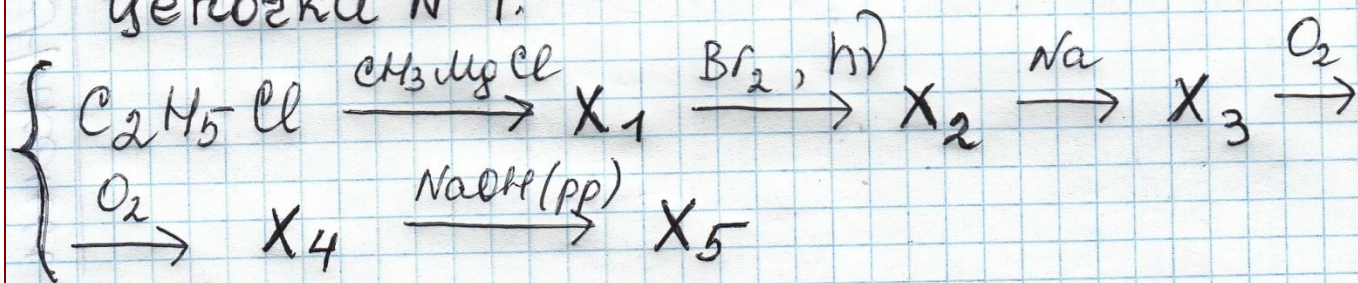 цепочки N 1.
C2H5Cl CH3MgCl X1 Br2, hν X2 Na X3 O2
O2 X4 NaOH(pp) X5